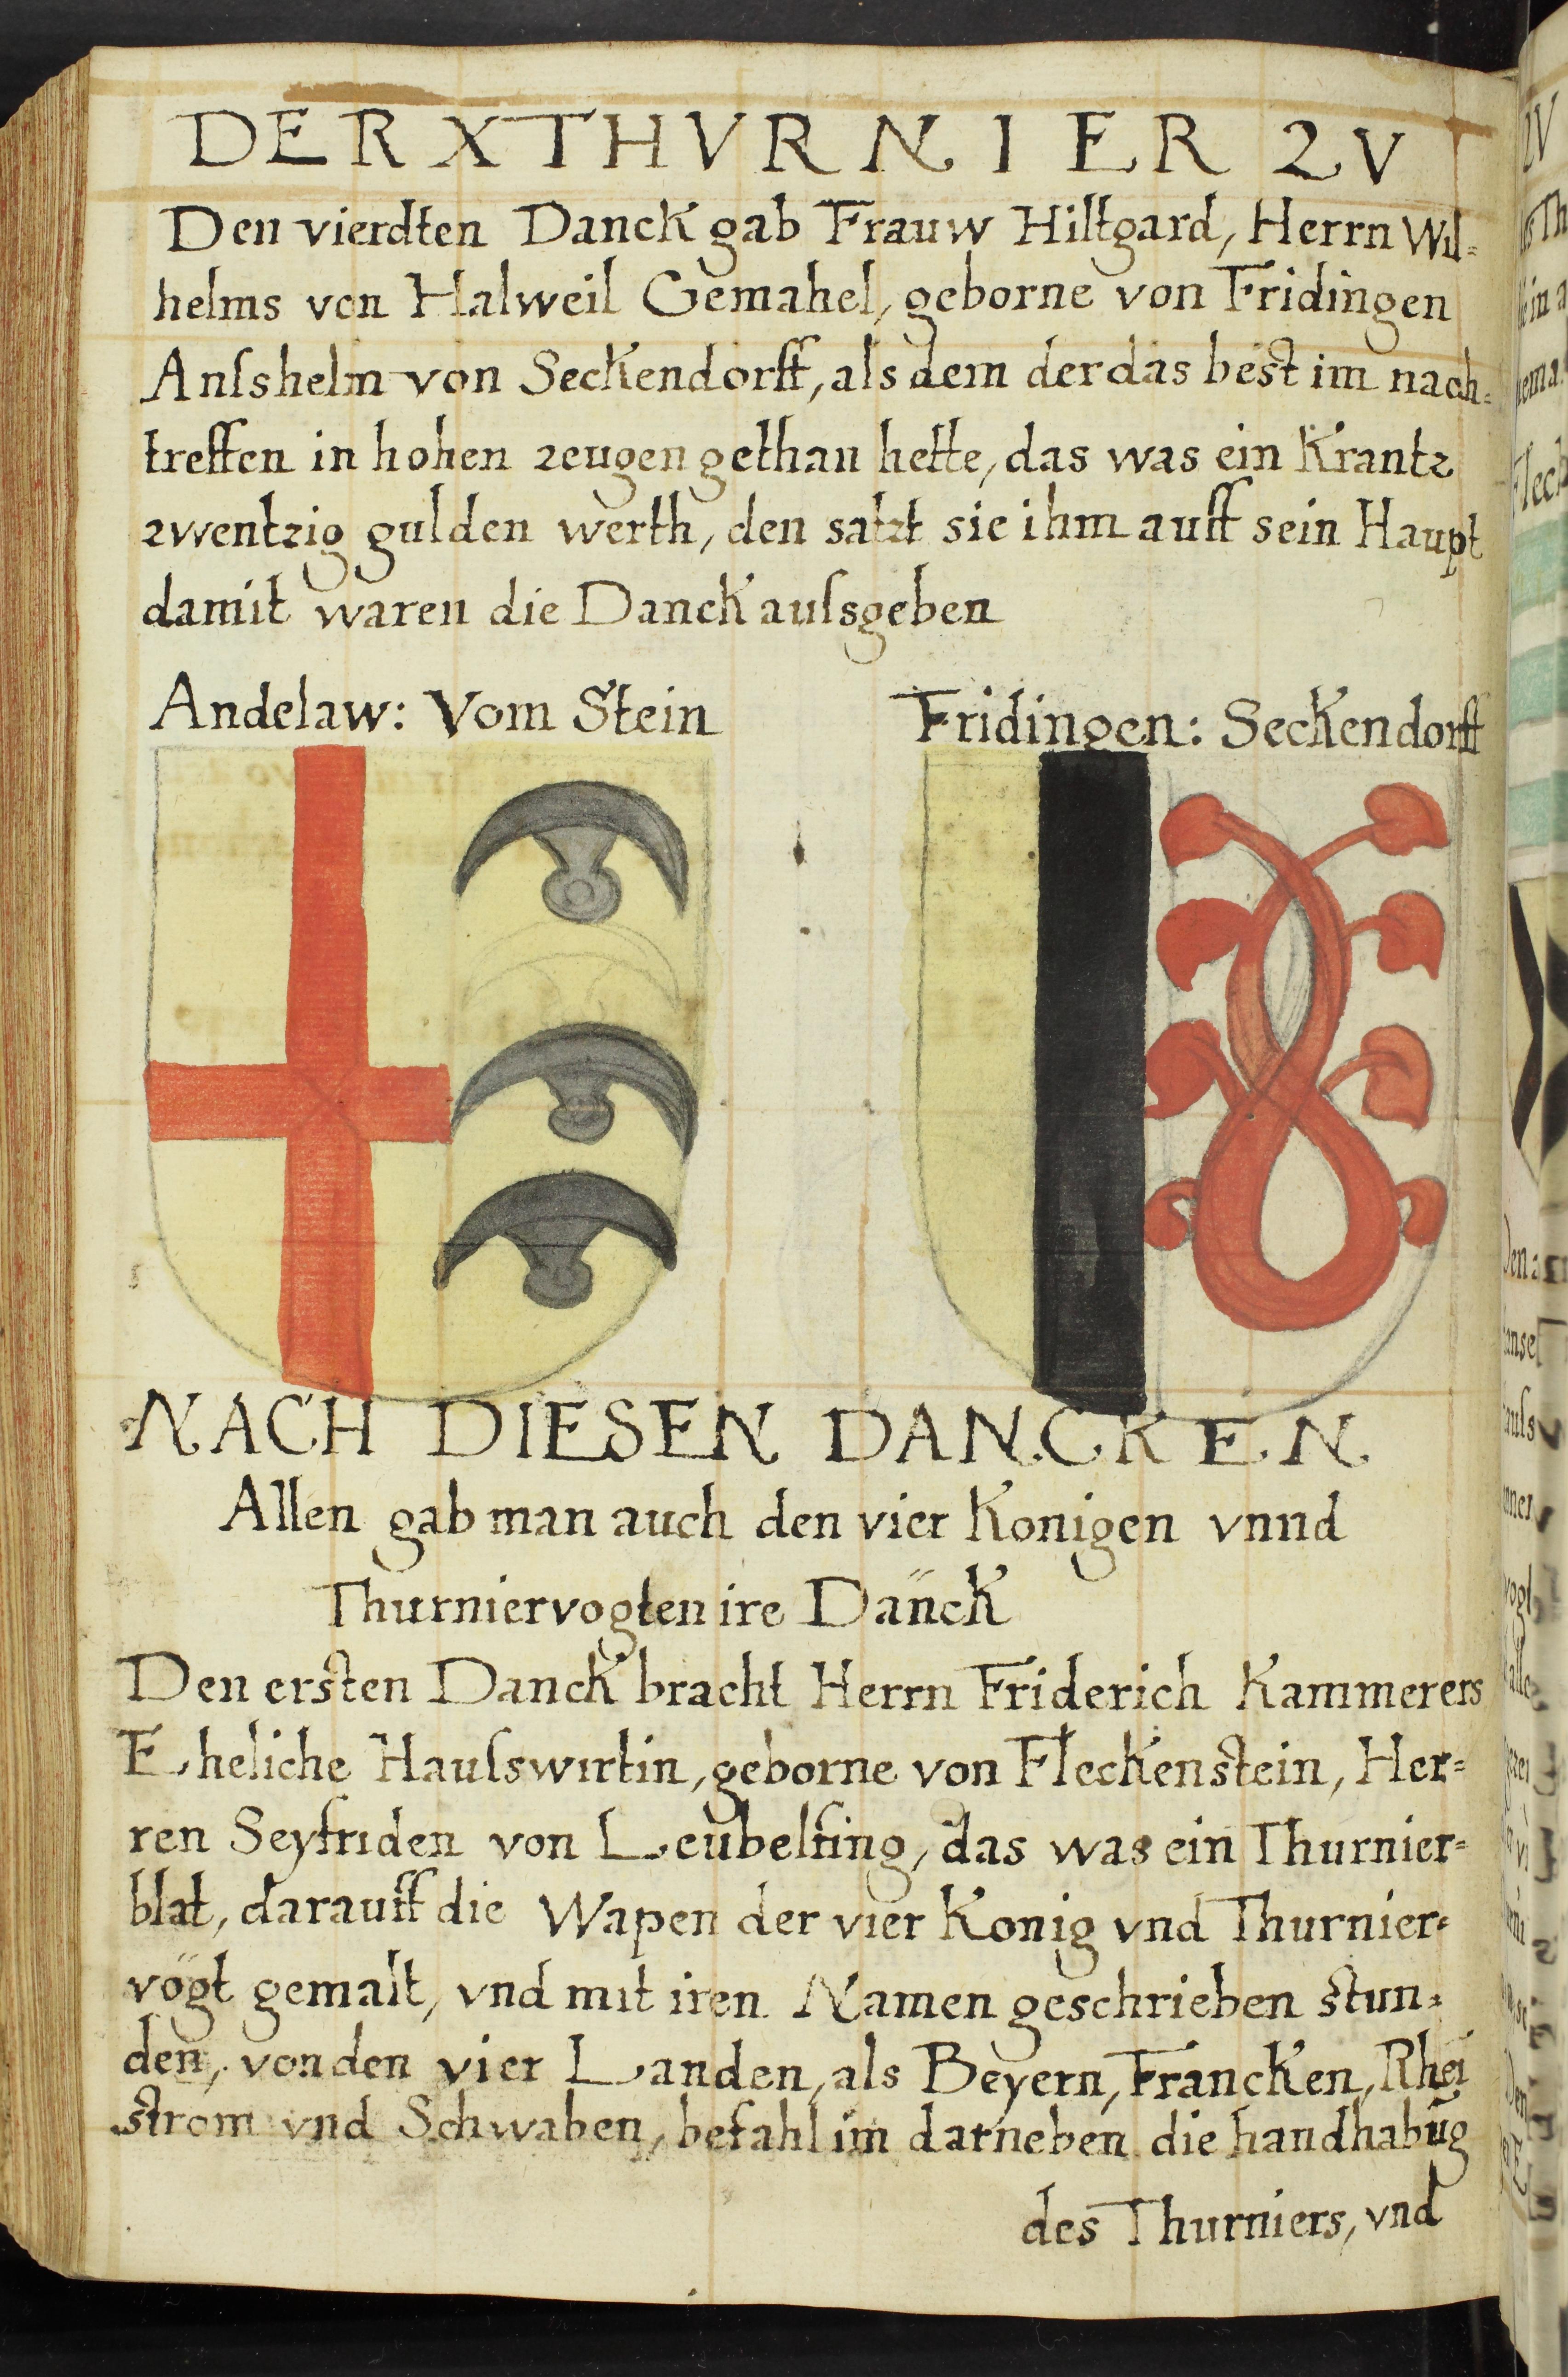 DER X THVRNIER ZV
Den vierdten Danck gab Frauw Hiltgard, Herrn Wil=
helms von Halweil Gemahel, geborne von Fridingen
Anſshelm von Seckendorff, als dem der das best im nach=
treffen in hohen zeugen gethan hette, das was ein Krantz
zwentzig gulden werth, den satzt sie ihm auff sein Haupt
damit waren die Danck auſsgeben
Andelaw: Vom Stein
Fridingen: Seckendorff
NACH DIESEN DANCKEN
Allen gab man auch den vier Konigen vnnd
Thurniervogten ire Dänck
Den ersten Danck bracht Herrn Friderich Kammerers
Eheliche Hauſswirtin, geborne von Fleckenstein, Her=
ren Seyfriden von Leubelfing, das was ein Thurnier=
blat, darauff die Wapen der vier Konig vnd Thurnier=
vögt gemalt, vnd mit iren Namen geschrieben stun=
den, von den vier Landen, als Beyern, Francken, Rhei
strom vnd Schwaben, befahl im darneben die handhabūg
des Thurniers, vnd